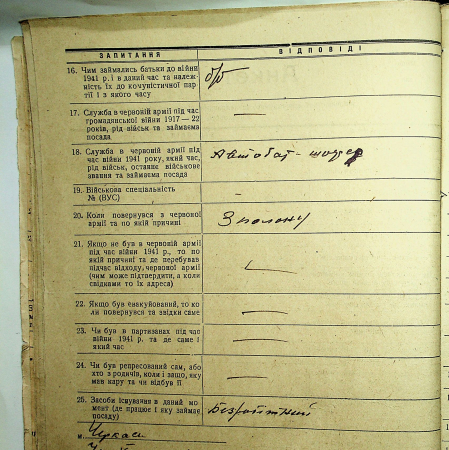 ЗАПИТАННЯ ВІДПОВІДІ
16. Чим займались батьки до війни
1941 р. і в даний час та належ-
ність їх до комуністичної пар-
тії і з якого часу
б/п
17. Служба в червоній армії під час
громадянської війни 1917—22
років, рід військ та займаєма
посада
—
18. Служба в червоній армії під
час війни 1941 року, який час,
рід військ, останнє військове
звання та займаєма посада
Автобат - шофер
19. Військова спеціальність
№ (ВУС)
–
20. Коли повернувся з червоної
армії та по якій причині
З полону
21. Якщо не був в червоній армії
під час війни 1941 р., то по
якій причині та де перебував
підчас відходу, червоної армії
(чим може підтвердити, а коли
свідками то їх адреса)
—
22. Якщо був евакуйований, то ко-
ли повернувся та звідки саме
—
23. Чи був в партизанах під час
війни 1941 р. та де саме і
який час
—
24. Чи був репресований сам, або
хто з родичів, коли і защо, яку
мав кару та чи відбув її
—
25. Засоби існування в даний мо-
мент (де працює і яку займає
посаду)
Безробітний
м. Черкаси